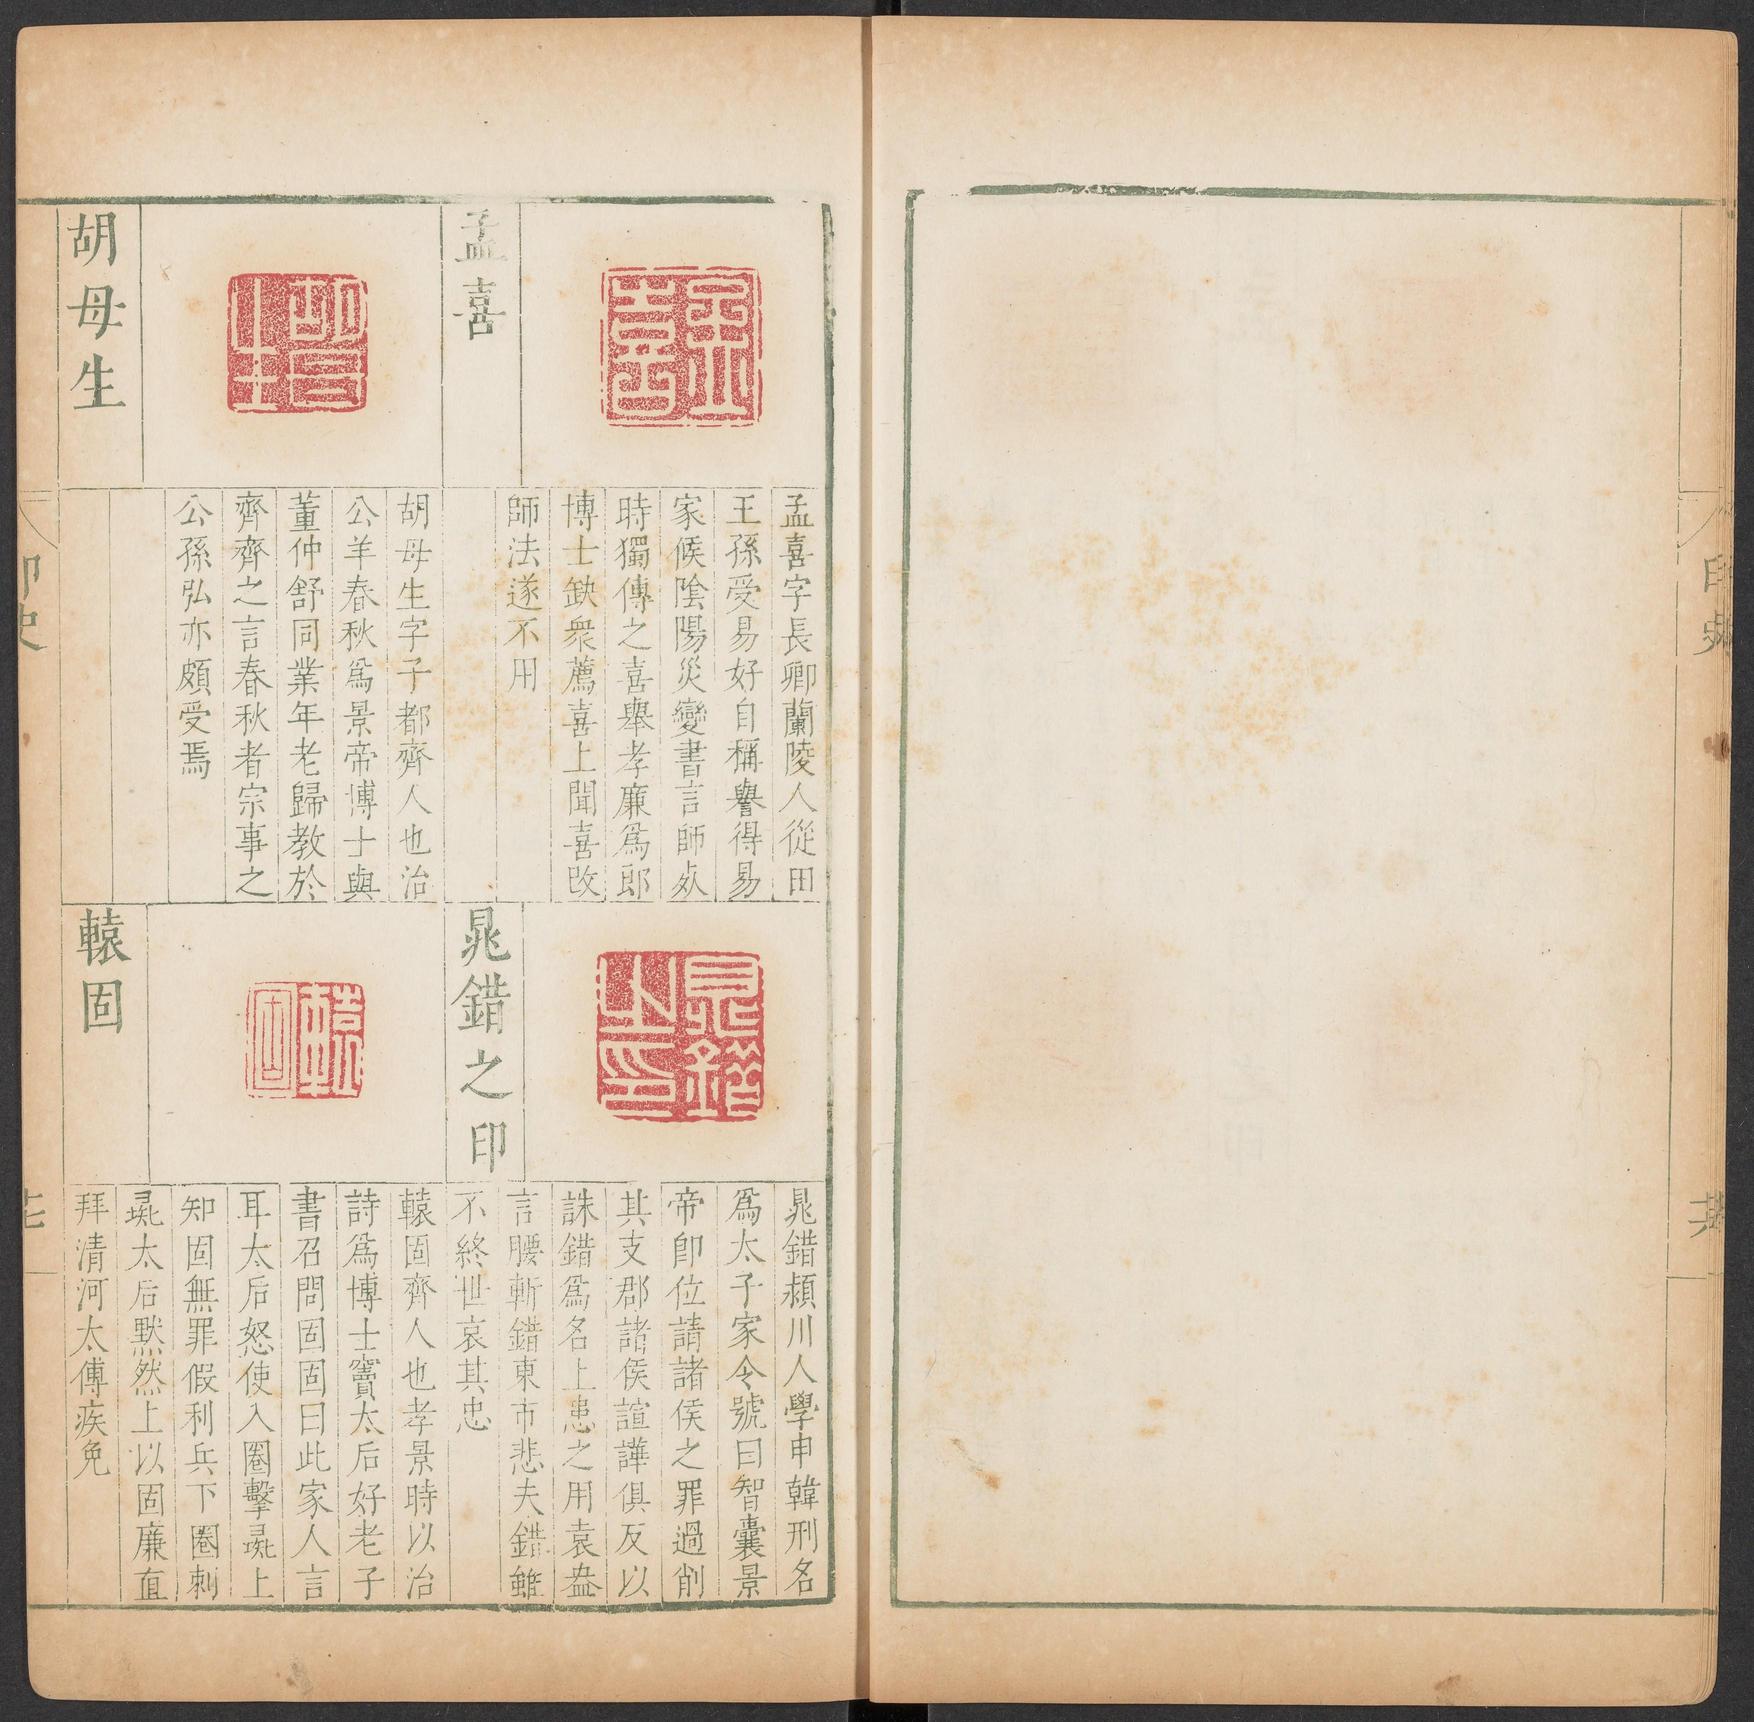 孟喜
孟喜字長卿蘭陵人從田
王孫受易好自稱譽得易
家候陰陽災變書言師㱕
時獨傳之喜舉孝廉為郎
博士缺衆薦喜上聞喜改
師法遂不用
胡母生
胡母生字子都齊人也治
公羊春秋爲景帝博士與
董仲舒同業年老歸教於
齊齊之言春秋者宗事之
公孫弘亦頗受焉
晁錯之印
晁錯潁川人學申韓刑名
爲太子家令號曰智囊景
帝卽位請諸侯之罪過削
其支郡諸侯諠譁俱反以
誅錯爲名上患之用袁盎
言腰斬錯東市悲夫錯雖
不終世哀其忠
轅固
轅固齊人也孝景時以治
詩爲博士竇太后好老子
書召問固固曰此家人言
耳太后怒使入圈擊彘上
知固無罪假利兵下圈刺
彘太后默然上以固廉直
拜清河太傅疾免
印史